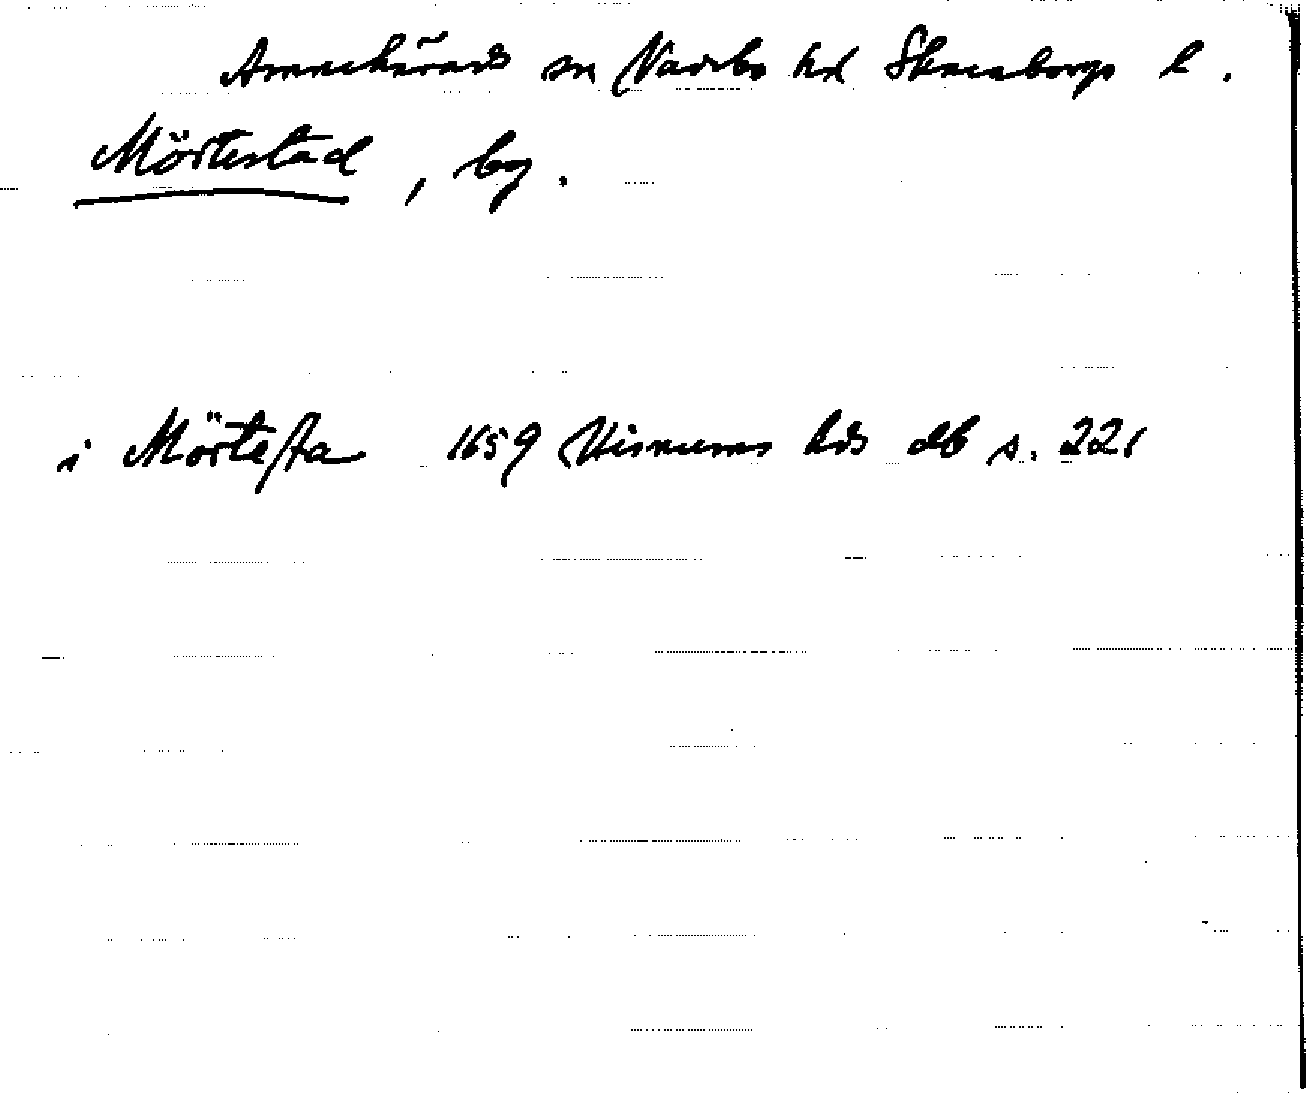 Amnehärads sn Vadsbo hd Skaraborgs l.
Mörtestad, by.
i Mörtesta 1659 Visnums hds db s. 221